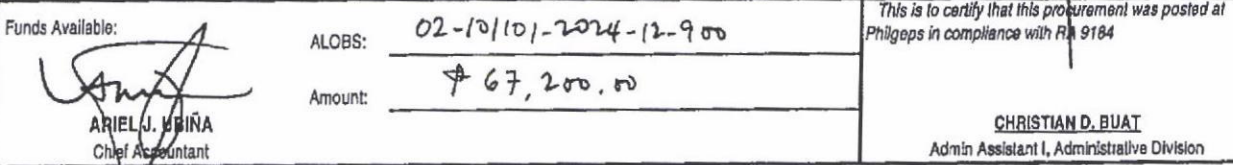 Funds Available:
ARIEL J. UBIÑA
Chief Accountant
ALOBS: 02-10/101-2024-12-900
Amount: ₱ 67,200.00
This is to certify that this procurement was posted at
Philgeps in compliance with RA 9184
CHRISTIAN D. BUAT
Admin Assistant I, Administrative Division